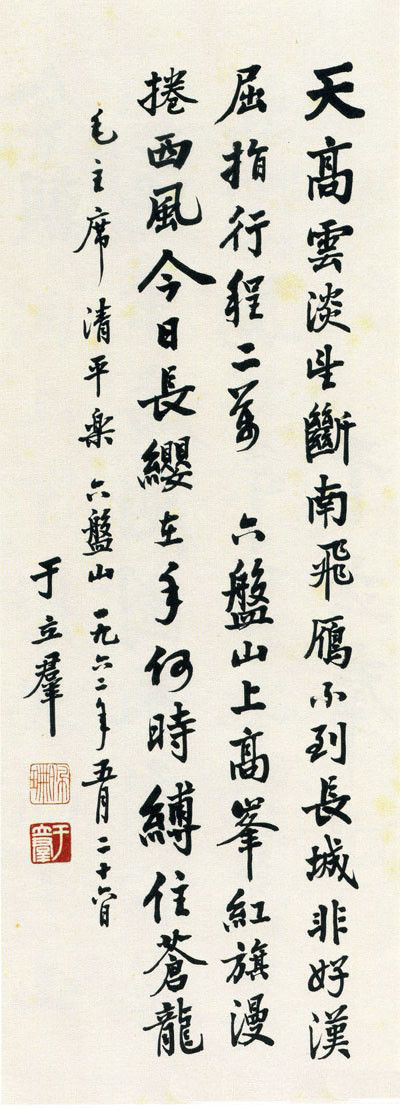 天高雲淡望斷南飛鴈不到長城非好漢
屈指行程二萬 六盤山上高峯紅旗漫
捲西風今日長纓在手何時縛住蒼龍
毛主席清平樂六盤山一九六二年五月二十六日
于立羣
于立羣